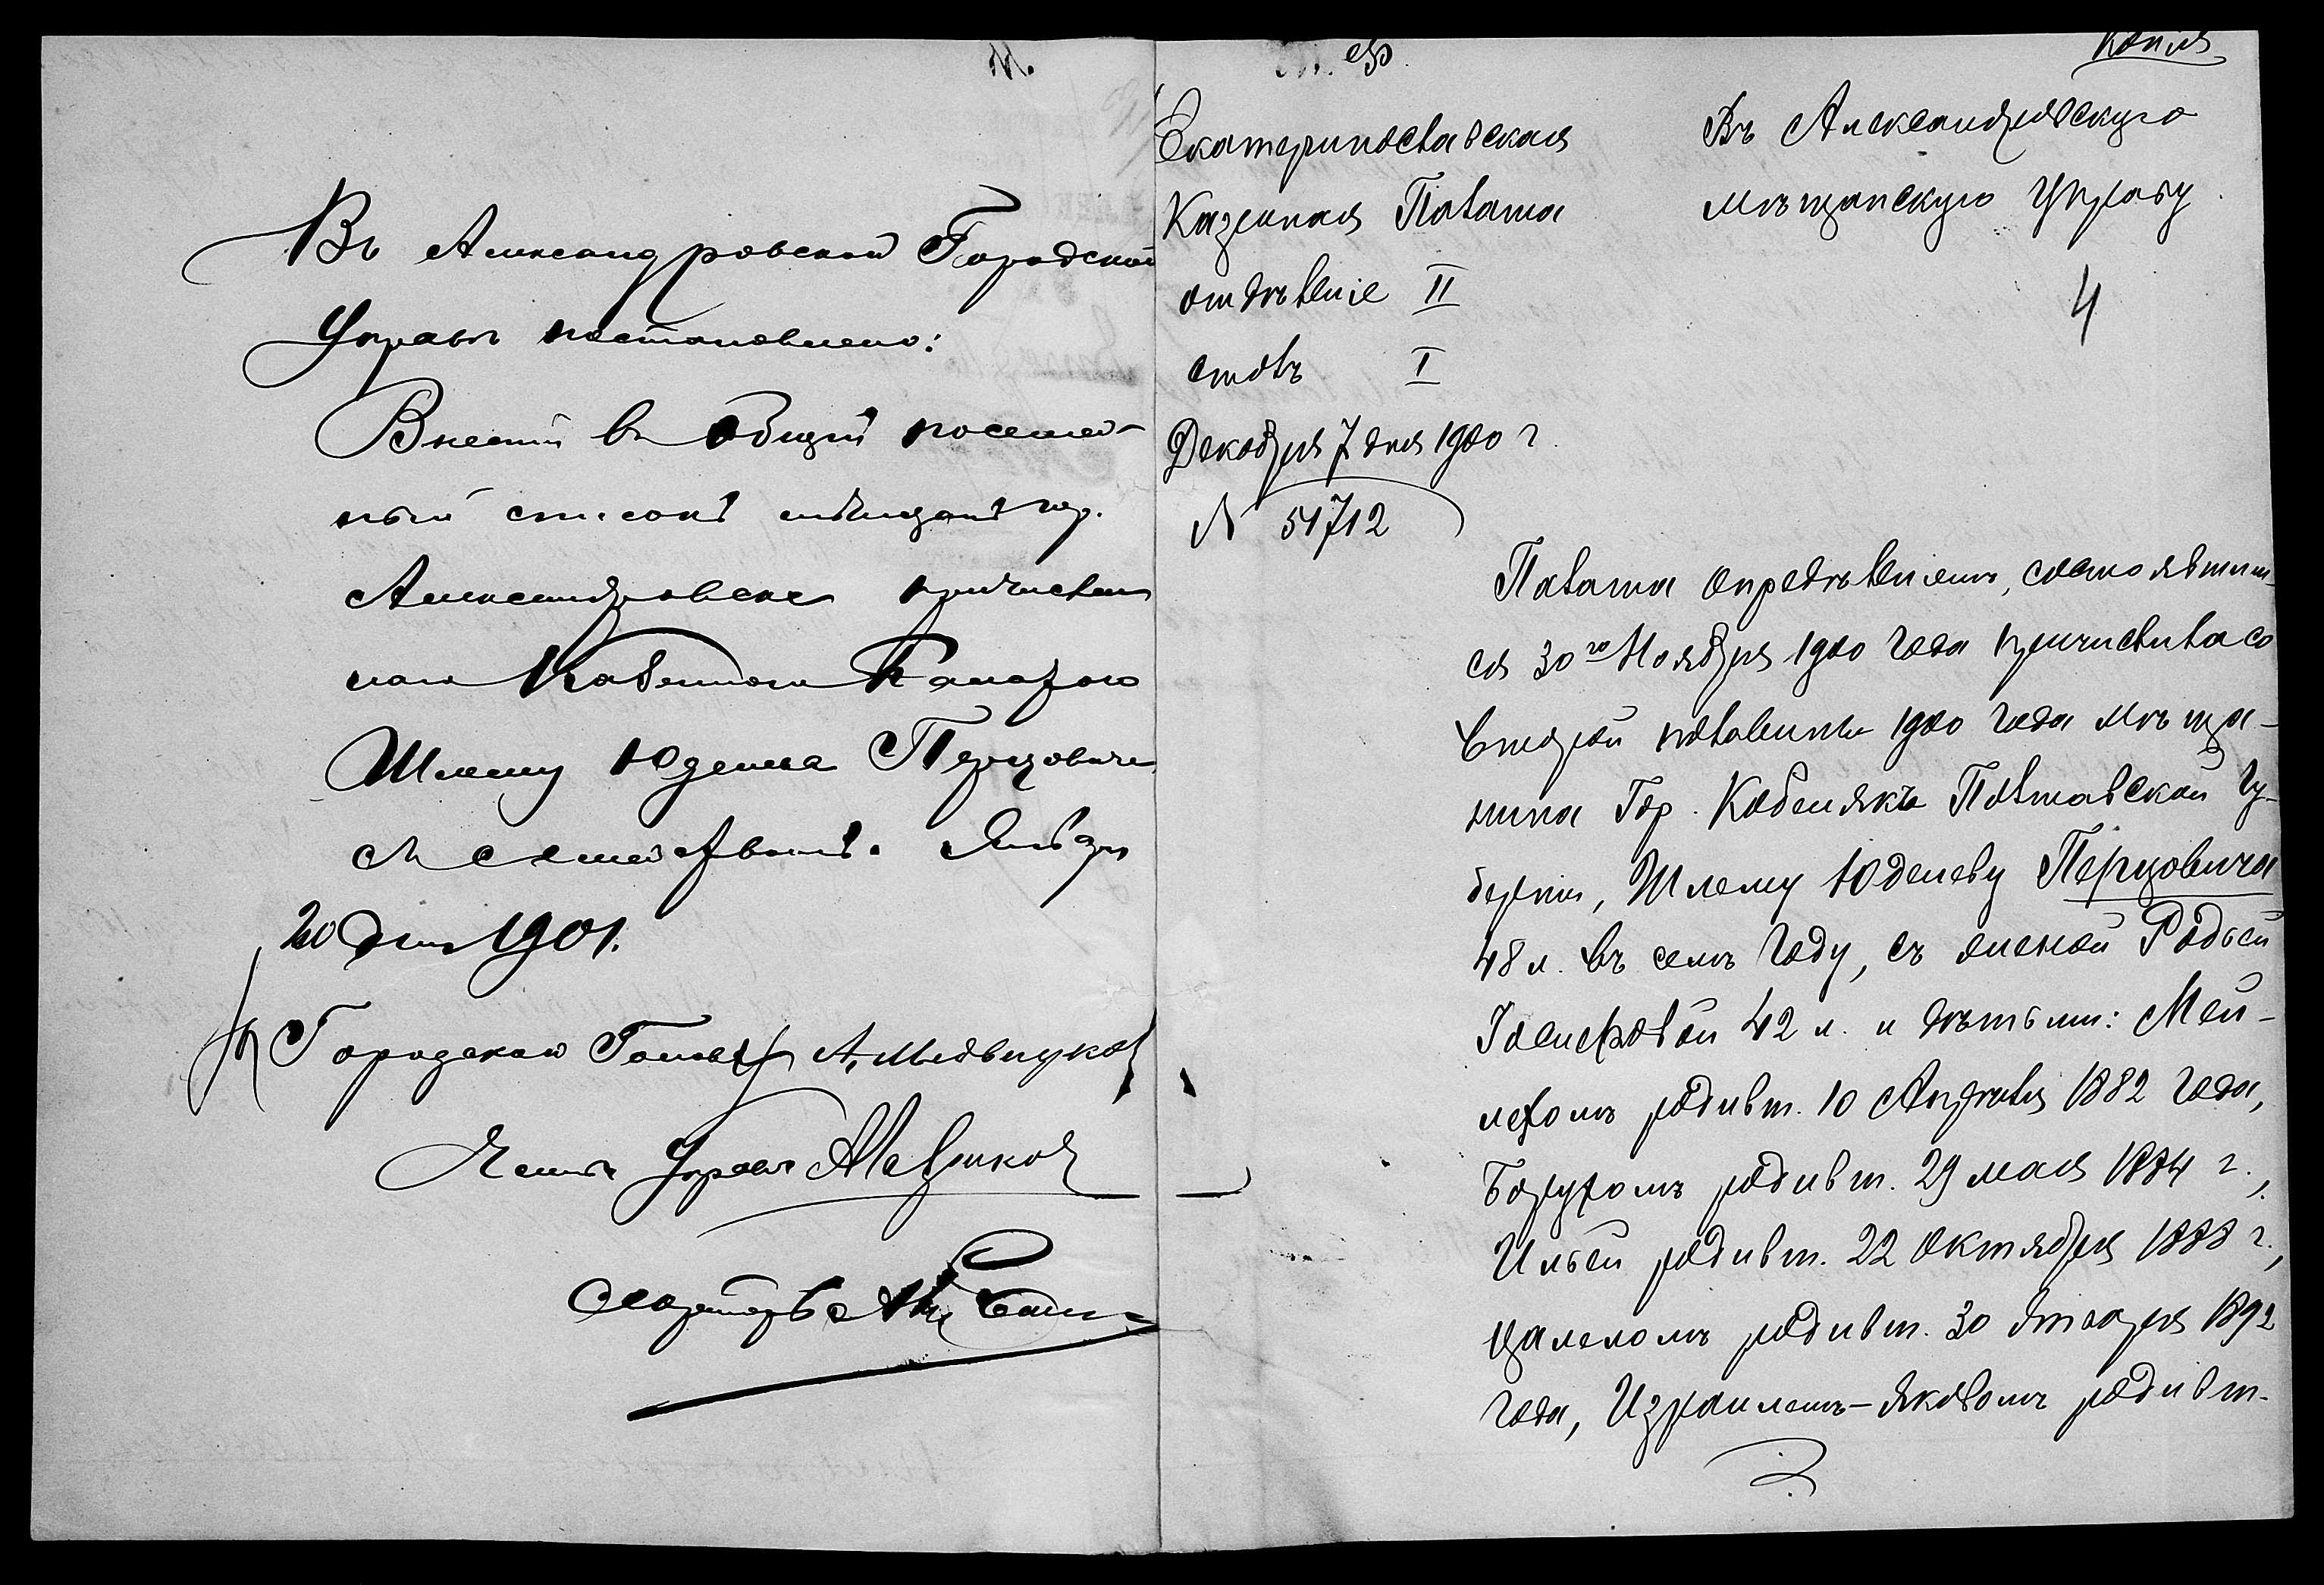 Въ Александровской Городской
Управѣ постановлено:
Внести въ общій посемей-
ный списокъ мѣщанъ гор.
Александровска причислен-
наго Казенною Палатою
Шлему Юделева Перцовича
съ семействомъ. Января
20 дня 1901.
Городской Голова
Членъ Управы
Секретарь
Копія
Екатеринославская
Казенная Палата
отдѣленіе II
столъ I
Декабря 7 дня 1900 г.
№ 51712
Въ Александровскую
мѣщанскую Управу.
4
Палата опредѣленіемъ, состоявшим-
ся 30го Ноября 1900 года причислила со
второй половины 1900 года мѣща-
нина Гор. Кобелякъ Полтавской Гу-
берніи, Шлему Юделеву Перцовича
48 л. въ семъ году, съ женой Родьей
Іосифовой 42 л. и дѣтьми: Мей-
лехомъ родивш. 10 Апрѣля 1882 года,
Борухомъ родивш. 29 мая 1884 г.,
Ильей родивш. 22 Октября 1888 г.,
Цалеломъ родивш. 30 Января 1892
года, Израилемъ-Яковомъ родивш.